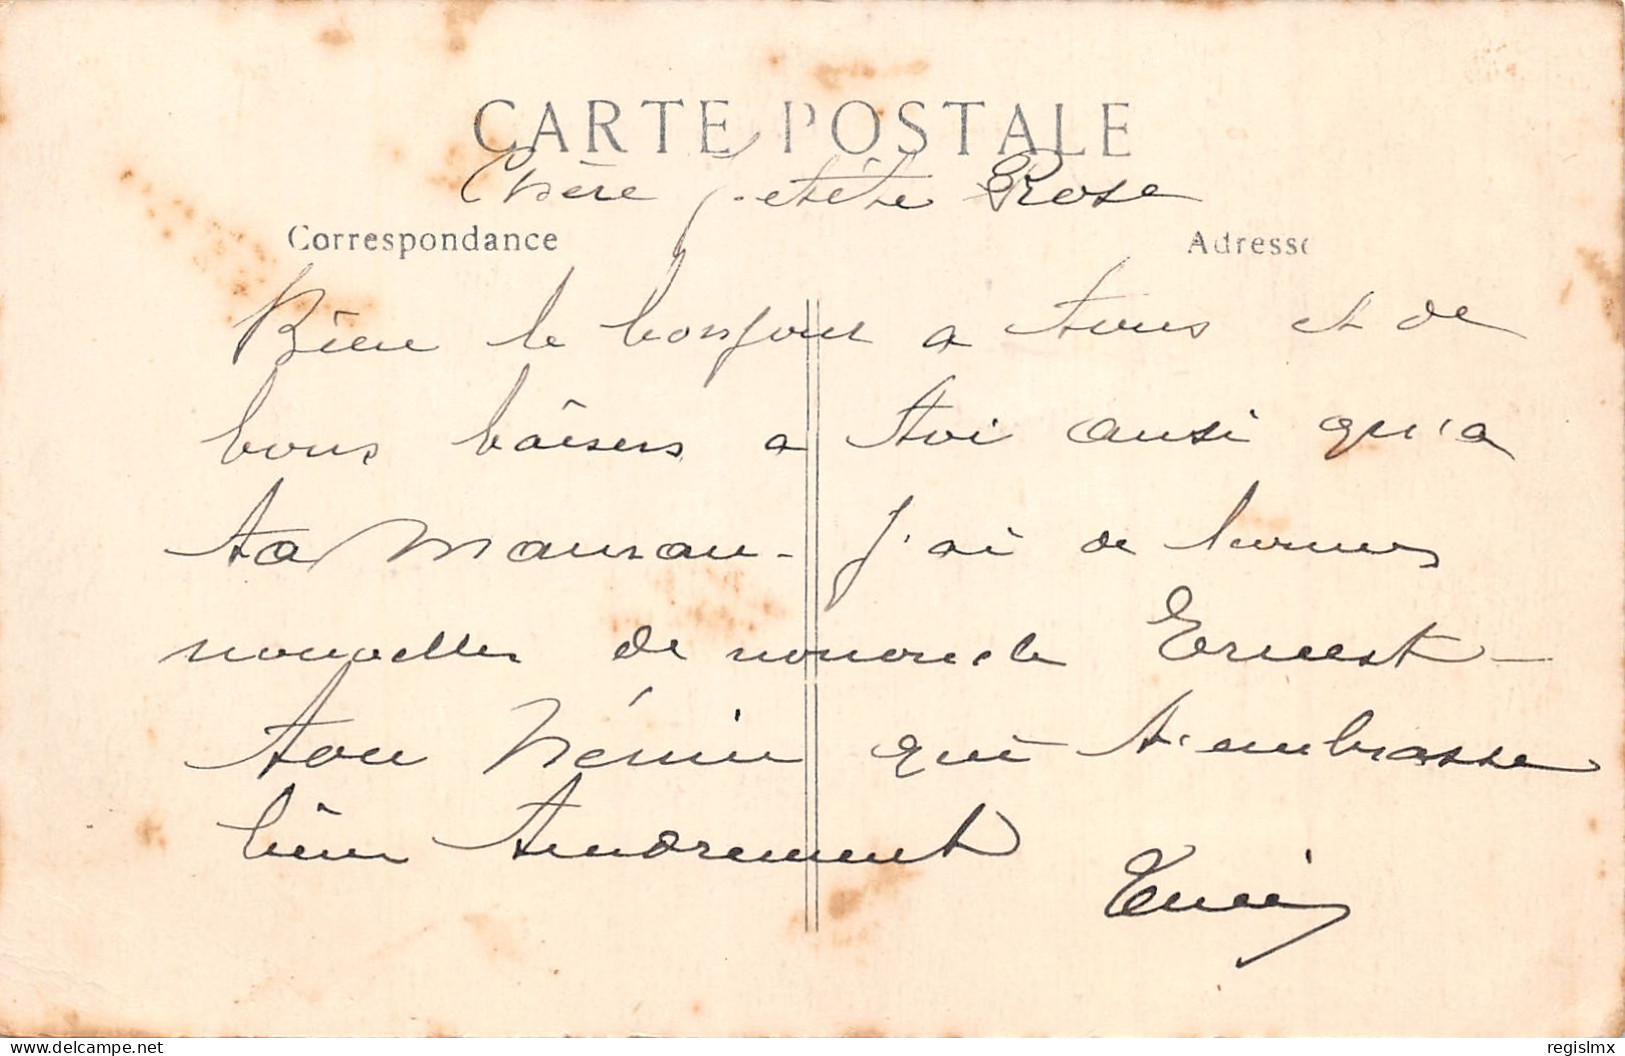 CARTE POSTALE
Chère petite Rose
Correspondance
Adresse
Bien le bonjour a tous et de
bons baisers a toi ausi qu'a
ta maman - j'ai de bonnes
nouvelles de nononcle Ernest -
ton Nénin qui t'embrasse
bien tendrement
delcampe.net
regislmx